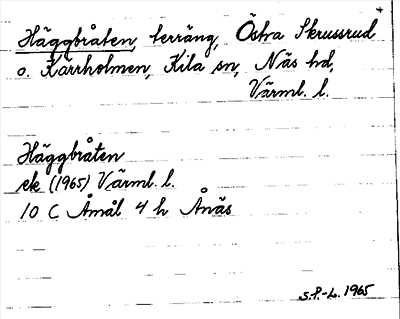 Häggbråten, terräng, Östra Skrussrud
o. Kärrholmen, Kila sn, Näs hd,
Värml. l.
Häggbråten
ek (1965) Värml. l.
10 C Åmål 4 h Ånäs
S.P.-L. 1965